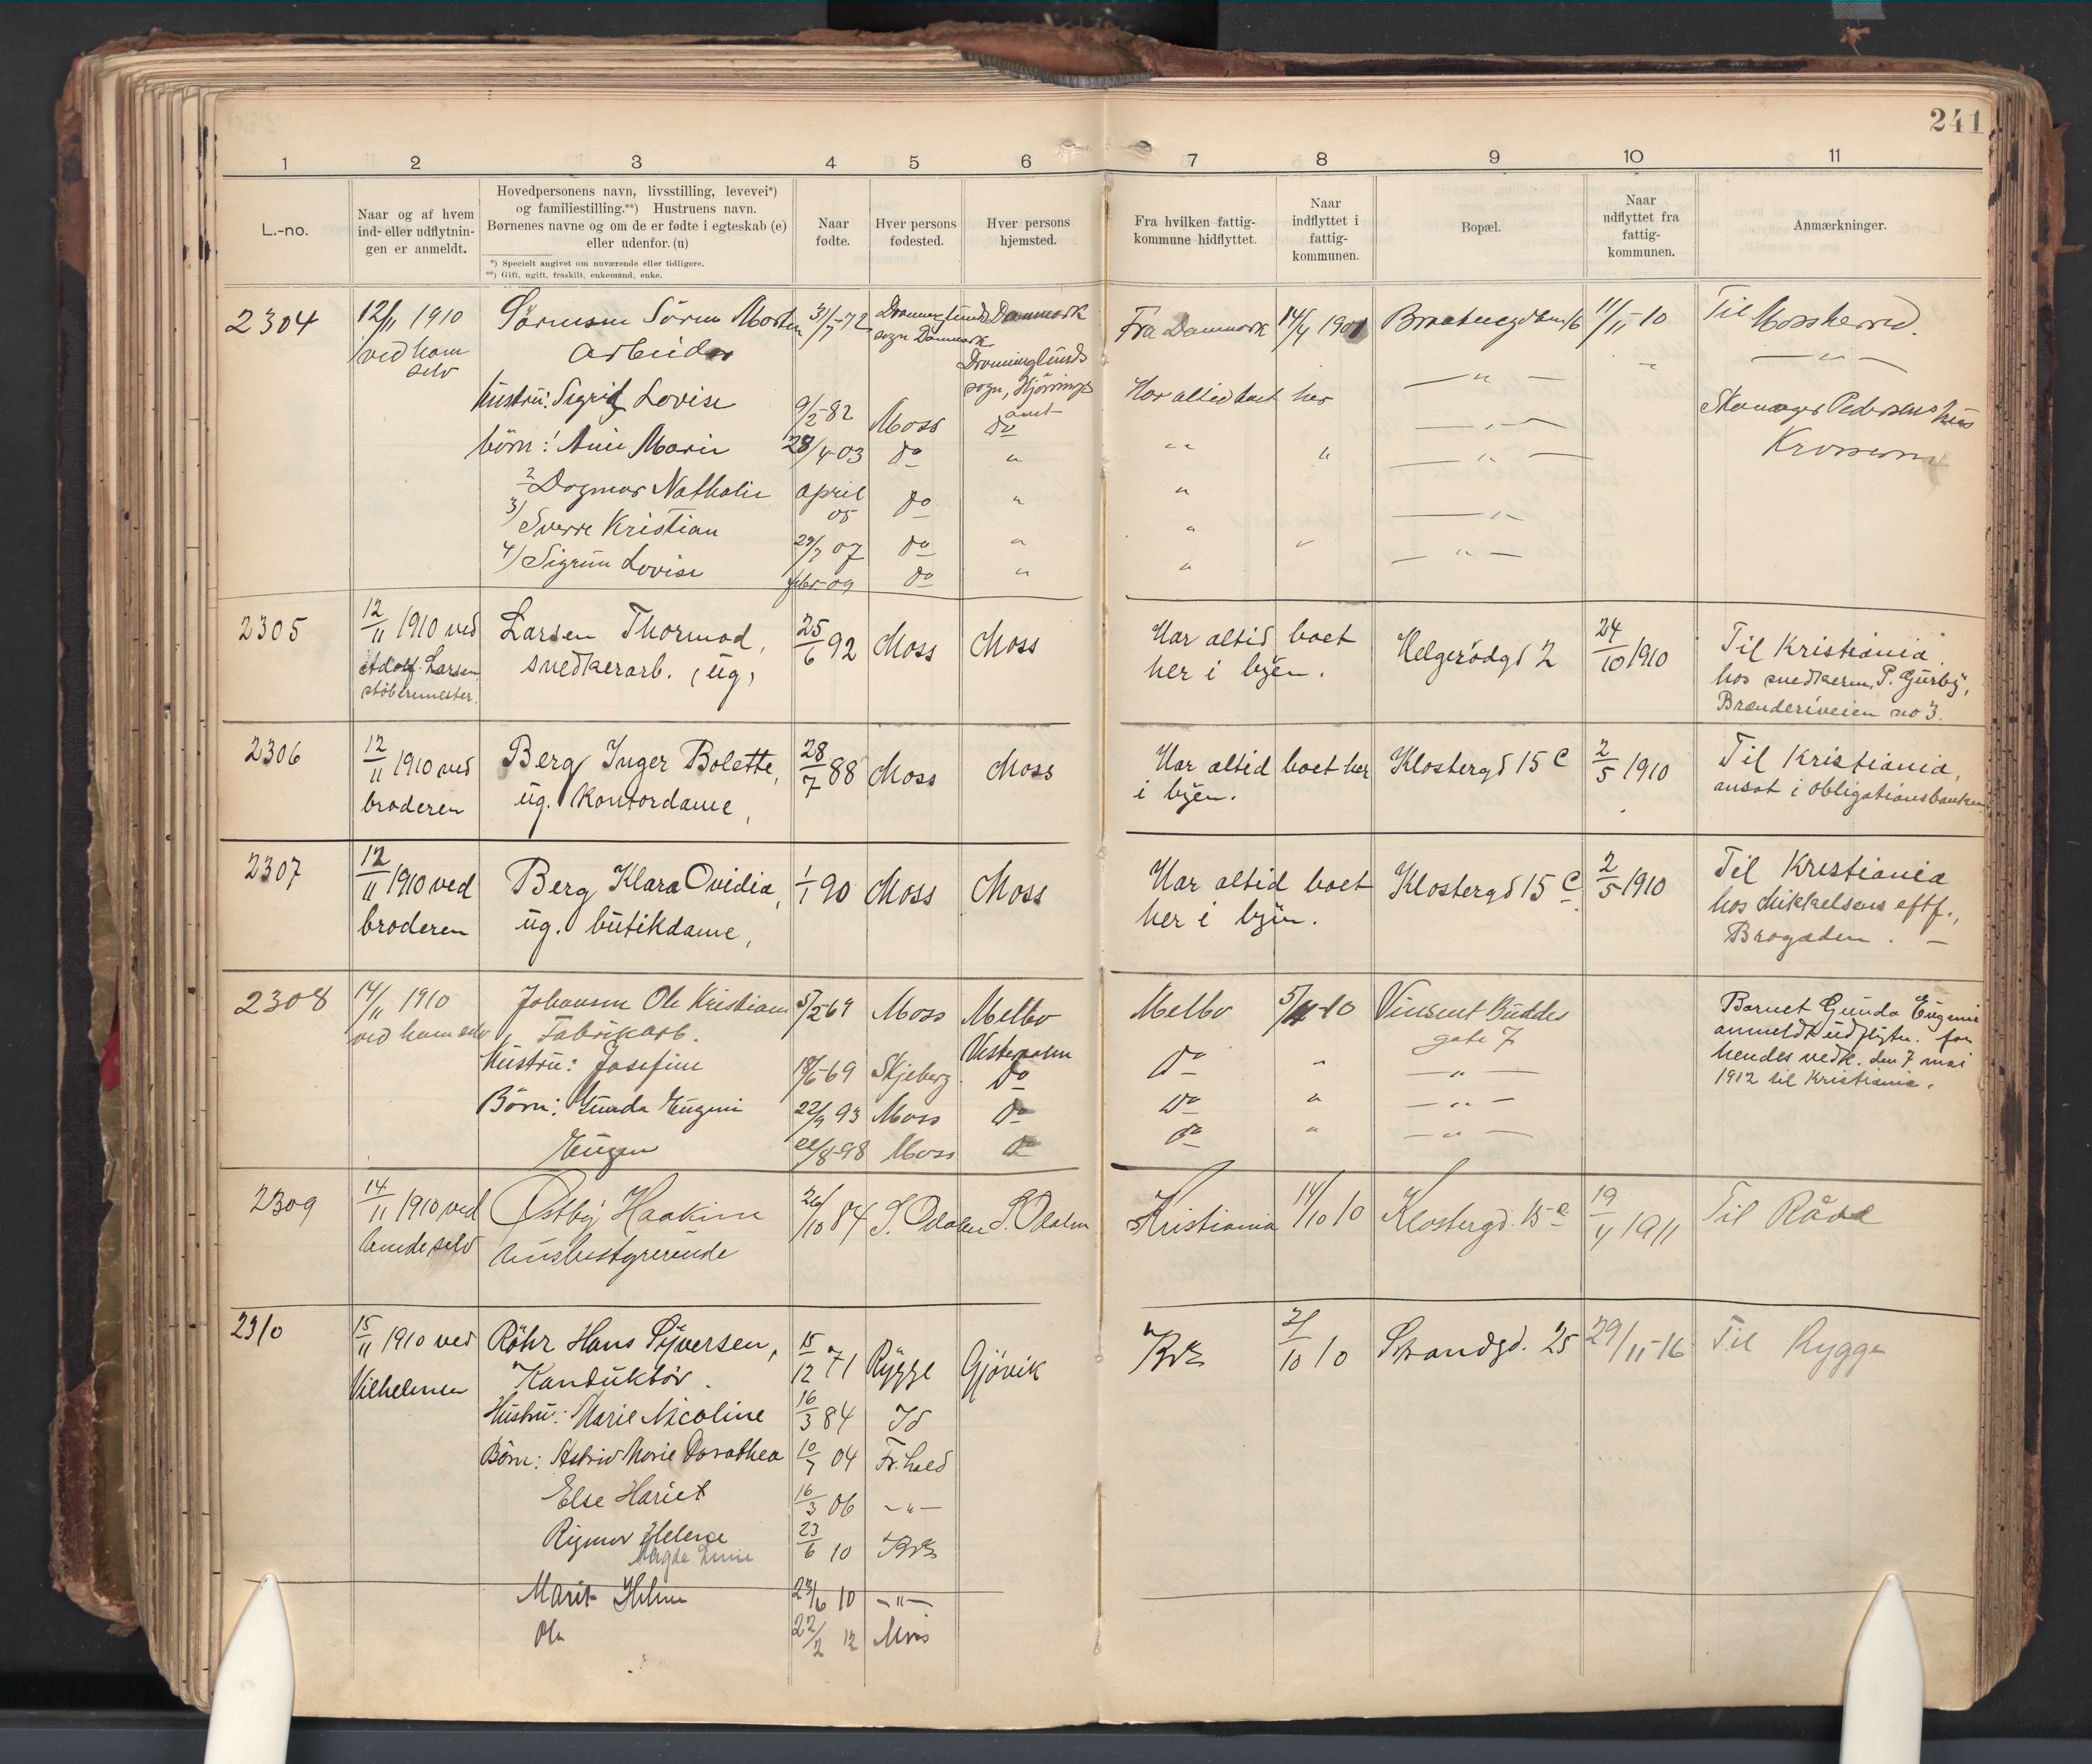 241
1 2 3 4 5 6 7 8 9 10 11
L.-no.
Naar og af hvem
ind- eller udflytnin-
gen er anmeldt.
Hovedpersonens navn, livsstilling, levevei*)
og familiestilling.**) Hustruens navn.
Børnenes navne og om de er fødte i egteskab (e)
eller udenfor. (u)
*) Specielt angivet om nuværende eller tidligere.
**) Gift, ugift, fraskilt, enkemand, enke.
Naar
fødte.
Hver persons
fødested.
Hver persons
hjemsted.
Fra hvilken fattig-
kommune hidflyttet.
Naar
indflyttet i
fattig-
kommunen.
Bopæl.
Naar
udflyttet fra
fattig-
kommunen.
Anmærkninger.
2304 12/11 1910 Sørensen Sören Morten 31/7-72 Dronninglunds Danmark Fra Danmark 14/4 1901 11/11-10 Til Moss herred.
ved ham Arbeider sogn Danmark
selv Dronninglunds
Hustru: Sigrid Lovise 9/2-82 Moss sogn, Hjörrings Har altid boet her — " — Pedersens hus
amt
do
börn: 1 Anne Marie 28/4-03 do " " " — " —
2 Dagmar Nathalie april 05 do " " — " —
3) Sverre Kristian 29/7 07 do " " " — " —
4) Sigrun Lovise febr-09 do " " — " —
2305 12/11 1910 ved Larsen Thormod, 25/6 92 Moss Moss Har altid boet Helgerödgd 2 24/10 1910 Til Kristiania
Adolf Larsen snedkerarb. (ug) her i byen. hos snedkerm. P. Gurby,
støbermester. Brænderiveien no 3.
2306 12/11 1910 ved Berg Inger Bolette, 28/7 88 Moss Moss Har altid boet her Klostergd 15 C 2/5 1910 Til Kristiania,
broderen ug. Kontordame, i byen. ansat i obligationsbanken
2307 12/11 1910 ved Berg Klara Ovidia, 1/1 90 Moss Moss Har altid boet Klostergd 15 C 2/5 1910 Til Kristiania
broderen ug. butikdame, her i byen. hos Mikkelsens eftf.,
Brogaden. —
2308 14/11 1910 Johansen Ole Kristian 5/2-69 Moss Melbo Melbo 5/11-10 Vincent Buddes Barnet Gunda Eugenie
ved ham selv Fabrikarb. Vesteraalen gate 7 anmeldt udflytn. for
Hustru: Josefine 18/6-69 Skjeberg do do " — " — hendes vedk. den 7 mai
Börn: Gunda Eugeni 22/9 93 Moss do do " — " — 1912 til Kristiania.
Eugen 22/8-98 Moss do do " — " —
2309 14/11 1910 ved Østby Haakine 26/10 84 S. Odalen S. Odalen Kristiania 14/10 10 Klostergd. 15 c 19/4 1911 Til Råde
hende selv husbestyrerinde
2310 15/11 1910 ved Röhr Hans Syversen, 15/12 71 Rygge Gjövik 21/10 10 Strandgd. 25 29/11-16 Til Rygge
Vilhelmsen Konduktör.
Hustru: Marie Nicoline 16/3 84 Id
Börn: Astrid Marie Dorothea 10/7 04 Fr.hald
Else Hariet 16/3 06 — " —
Rigmor Helene 23/6 10
Magda
Marit 23/6 10 — " —
Ole 22/2 12 Moss